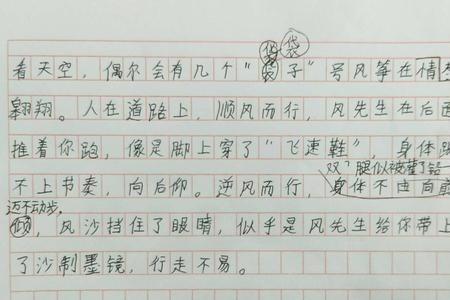 袋
看天空，偶尔会有几个“袋子”号风筝在情
翱翔。人在道路上，顺风而行，风先生在后面
推着你跑，像是脚上穿了“飞速鞋”，身体跟
双腿似被灌了铅
不上节奏，向后仰。逆风而行，身体不由向前
迈不动步，
倾，风沙挡住了眼睛，似乎是风先生给你带上
了沙制墨镜，行走不易。